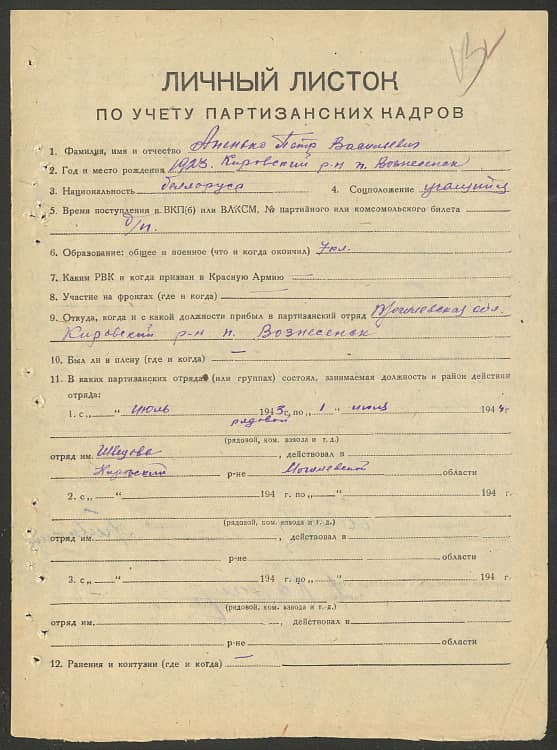 ЛИЧНЫЙ ЛИСТОК
ПО УЧЕТУ ПАРТИЗАНСКИХ КАДРОВ
1. Фамилия, имя и отчество Апенько Петр Васильевич
2. Год и место рождения 1928. Кировский р-н п. Вознесенск
3. Национальность беллорус 4. Соцположение учащийся
5. Время поступления в ВКП(б) или ВЛКСМ, № партийного или комсомольского билета
б/п.
6. Образование: общее и военное (что и когда окончил) 7 кл.
7. Каким РВК и когда призван в Красную Армию —
8. Участие на фронтах (где и когда) —
9. Откуда, когда и с какой должности прибыл в партизанский отряд Могилевская обл.
Кировский р-н п. Вознесенск
10. Был ли в плену (где и когда) —
11. В каких партизанских отрядах (или группах) состоял, занимаемая должность и район действия
отряда:
1. с „ — “ июль 1943 г. по „ 1 “ 1944 г
рядовой
(рядовой, ком. взвода и т. д.)
отряд им. Шведова, действовал в
Кировский р-не Могилевской области
2. с „ — “ 194 г. по „ — “ 194 г.
(рядовой, ком. взвода и т. д.)
отряд им. , действовал в
р-не области
3. с „ — “ 194 г. по „ — “ 194 г.
(рядовой, ком. взвода и т. д.)
отряд им. , действовал в
р-не области
12. Ранения и контузии (где и когда) —